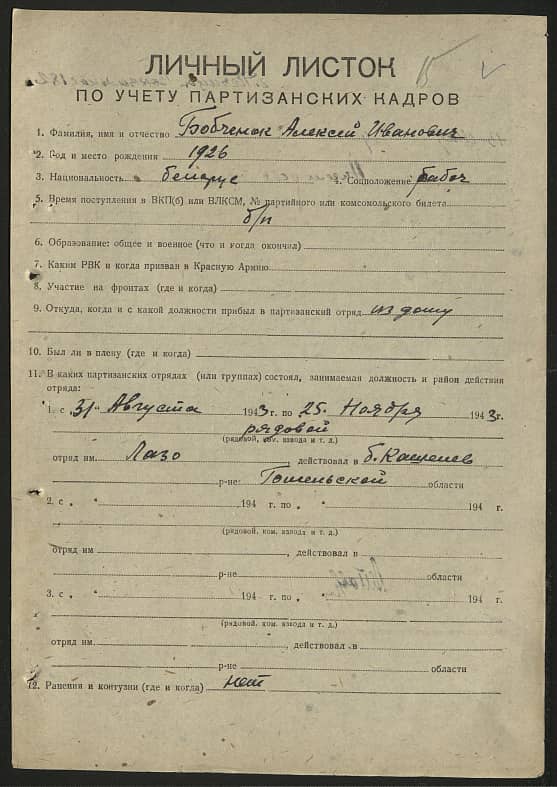 15
ЛИЧНЫЙ ЛИСТОК
ПО УЧЕТУ ПАРТИЗАНСКИХ КАДРОВ
1. Фамилия, имя и отчество Бобченок Алексей Иванович
2. Год и место рождения 1926
3. Национальность беларус 4. Соцположение рабоч
5. Время поступления в ВКП(б) или ВЛКСМ, № партийного или комсомольского билета
б/п
6. Образование: общее и военное (что и когда окончил)
7. Каким РВК и когда призван в Красную Армию
8. Участие на фронтах (где и когда)
9. Откуда, когда и с какой должности прибыл в партизанский отряд из дому
10. Был ли в плену (где и когда)
11. В каких партизанских отрядах (или группах) состоял, занимаемая должность и район действия
отряда:
1. с „31" Августа 1943 г. по „25" Ноября 1943 г.
рядовой
(рядовой, ком. взвода и т. д.)
отряд им. Лазо действовал в б. Кошелев
р-не Гомельской области
2. с „ " 194 г. по „ " 194 г.
(рядовой, ком. взвода и т. д.)
отряд им , действовал в
р-не области
3. с „ " 194 г. по „ " 194 г.
(рядовой, ком. взвода и т. д.)
отряд им. , действовал в
р-не области
12. Ранения и контузии (где и когда) нет